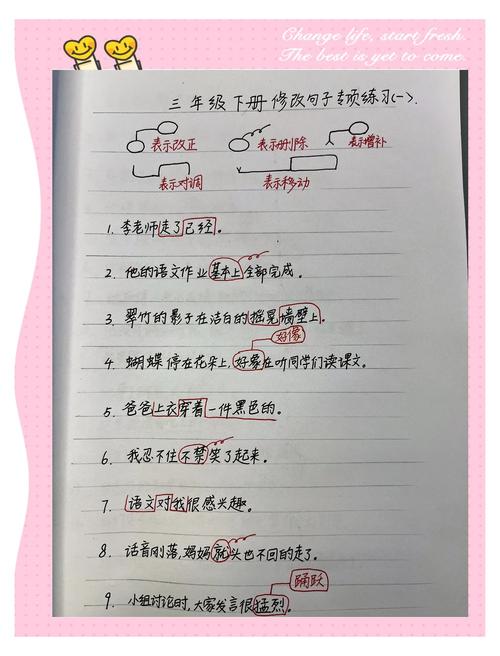 Change life, start fresh.
The best is yet to come.
三年级下册修改句子专项练习(一).
表示改正 表示删除 表示增补
表示对调 表示移动
1. 李老师走了已经。
2. 他的语文作业基本上全部完成。
3. 翠竹的影子在洁白的摇晃墙壁上。
好像
4. 蝴蝶停在花朵上,好象在听同学们读课文。
5. 爸爸上衣穿着一件黑色的。
6. 我忍不住不禁笑了起来。
7. 语文对我很感兴趣。
8. 话音刚落,妈妈就头也不回的走了。
踊跃
9. 小组讨论时,大家发言很猛烈。